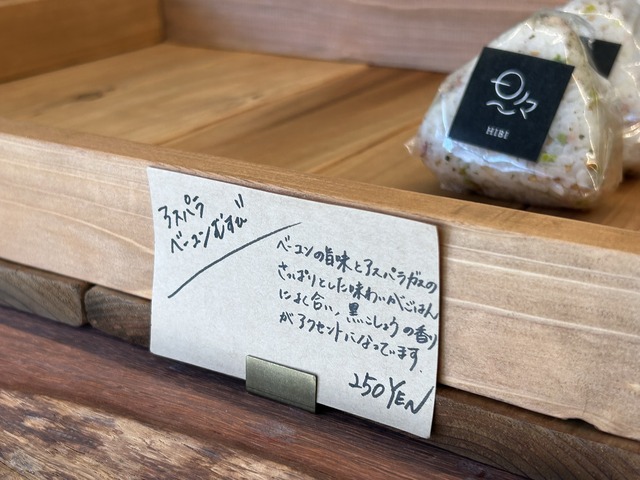 アスパラ
ベーコンむすび
ベーコンの旨味とアスパラガスの
さっぱりとした味わいがごはん
によく合い、黒こしょうの香り
がアクセントになっています。
250 YEN
日々
HIBI